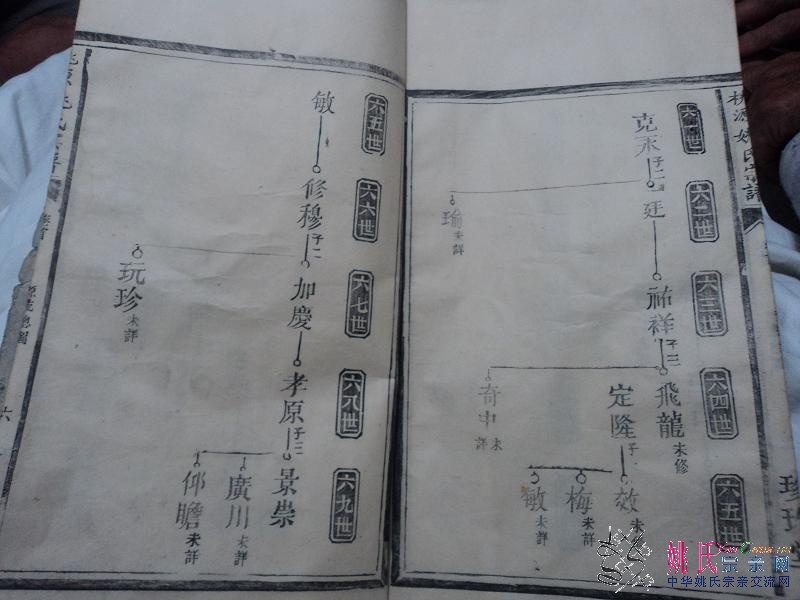 桃源姚氏宗譜
六二世
六三世
六四世
六五世
克禾 子二
廷
瑜 未詳
祐祥 子三
飛龍 未修
定隆 子三
奇中 未詳
效 未詳
梅 未詳
敏 未詳
六五世
六六世
六七世
六八世
六九世
敏
修穆 子二
加慶
玩珍 未詳
孝原 子三
景崇
廣川 未詳
仰瞻 未詳
源流總圖
六
姚氏宗亲网
中华姚氏宗亲交流网